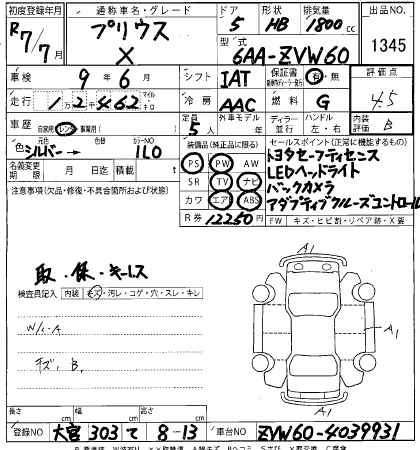 初度登録年月 通称車名・グレード ドア 形状 排気量 出品NO
R7/7月 プリウス 5 HB 1800cc 1345
X 型式 6AA-ZVW60
車検 9年6月 シフト IAT 保証書 有・無 評価点
走行 1 2 462 マイル キロ 冷房 AAC 燃料 G 4.5
車歴 自家用 レンタ 事業用( ) 定員 5人 外車モデル 年 ディーラー 並行 ハンドル 左・右 内装評価 B
色 元色 シルバー→ 色替 カラーNO 1L0 装備品(純正品に限る) セールスポイント(正常に機能するもの)
名義変更期限 月 日迄 積載 t PS PW AW トヨタセーフティセンス
注意事項(欠品・修復・不具合箇所および状態) SR TV ナビ LEDヘッドライト
カワ エアB ABS バックカメラ
R券 12250円 アダプティブクルーズコントロール
FW キズ・ヒビ割・リペア跡・X要
取・保・キーレス
検査員記入 内装 キズ・汚レ・コゲ・穴・スレ・キレ
W/C・A
キズ、B、
A1
A1
A1
長さ cm 幅 cm 高さ cm
登録NO 大宮 303 て 8-13 車台NO ZVW60-4039931